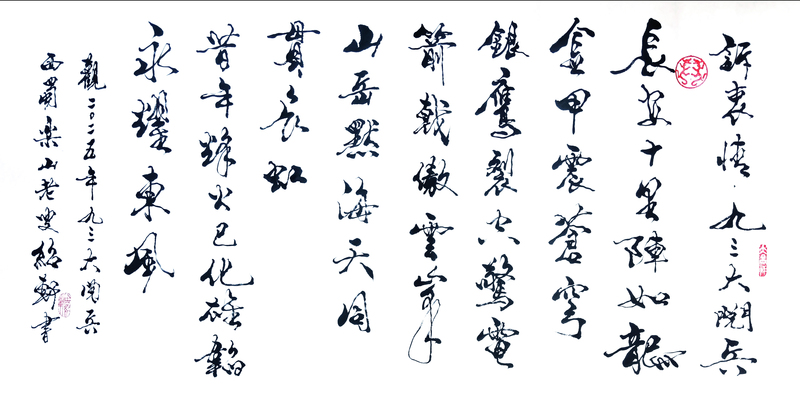 訴衷情·九三大閱兵
長安十里陣如龍
金甲震蒼穹
銀鷹裂空驚電
箭戟傲雲峯
山岳黙海天同
貫長虹
昔年烽火已化韜
永耀東風
觀二〇二五年九三大閱兵
西蜀樂山老叟紹軒書